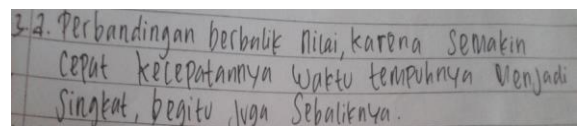 3.a. Perbandingan berbalik nilai, karena semakin
cepat kecepatannya waktu tempuhnya menjadi
singkat, begitu juga sebaliknya.